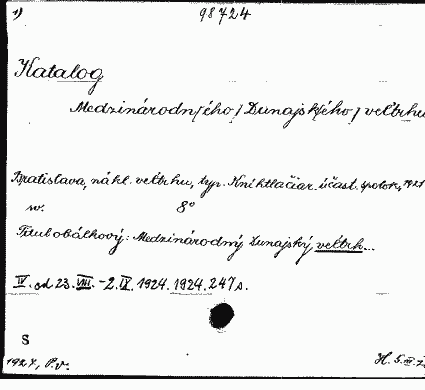 1) 98724
Katalog
Medzinárodn/ého/ Dunajsk/ého/ veľtrhu
Bratislava, nákl. veľtrhu, typ. Kníhtlačiar. účast. spolok, 1921
w. 8°
Titul obálkový: Medzinárodný Dunajský veľtrh...
IV. od 23. VIII. - 2. IX. 1924. 1924. 247 s.
S
1927, P.v. H. 5.